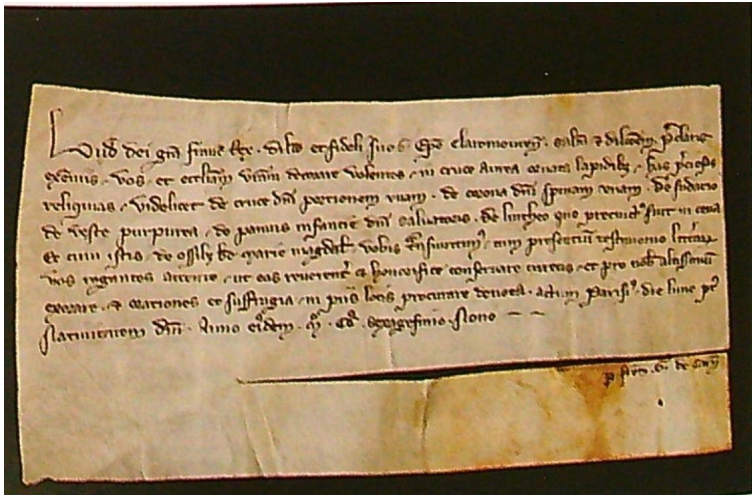 Lud dei gra francie Rex. dilto et fideli suo. Epo Claromonten. salm & dilcoem. preclaris
exeniis. vos. et eccliam vram decorare volentes. in cruce aurea ornata lapidibz. has preciosas
reliquias. videlicet de cruce dni portionem unam. de corona dni spinam unam. de sudario
de veste purpurea. de pannis infantie dni salvatoris. de lintheo quo precinctus fuit in cena
Et cum istis. de ossibz be marie magdal. vobis transmittimus. cum presentium testimonio litterarum
vos rogantes attente. ut eas reverenter & honorifice conservare curetis. et pro nobis altissimum
exorare. & orationes et suffragia. in piis locis procurare devota. actum Parisius. die lune post
Nativitatem dni. Anno eiusdem. Mo. CCo. sexagesimo. Nono